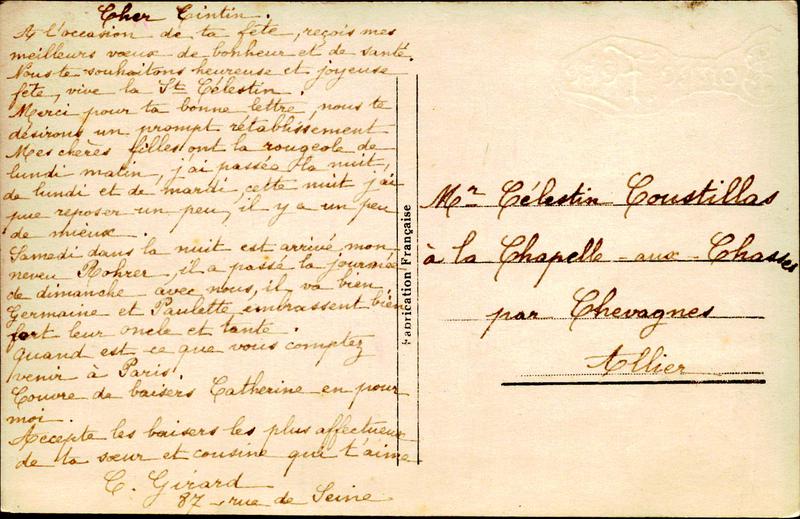 Cher Tintin.
A l'occasion de ta fête, reçois mes
meilleurs vœux de bonheur et de santé.
Nous te souhaitons heureuse et joyeuse
fête, vive la St Célestin.
Merci pour ta bonne lettre, nous te
désirons un prompt rétablissement
Mes chères filles ont la rougeole de
lundi matin, j'ai passée la nuit,
de lundi et de mardi, cette nuit j'ai
pue reposer un peu, il y a un peu
de mieux.
Samedi dans la nuit est arrivé mon
neveu Rohrer, il a passé la journée
de dimanche avec nous, il va bien.
Germaine et Paulette, embrassent bien
fort leur oncle et tante.
Quand est-ce que vous comptez
venir à Paris.
Couvre de baisers Catherine en pour
moi.
Accepte les baisers les plus affectueux
de ta sœur et cousine qui t'aime
C. Girard
87 rue de Seine
Fabrication Française
Mr Célestin Coustillas
à la Chapelle-aux-Chasses
par Chevagnes
Allier